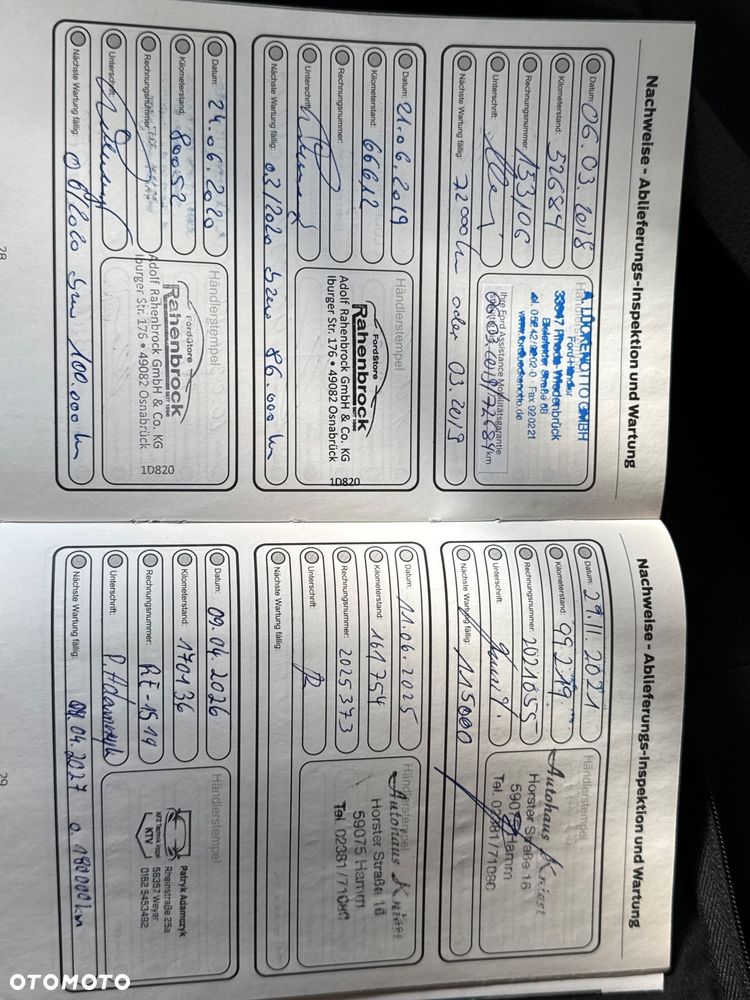 Nachweise - Ablieferungs-Inspektion und Wartung
Datum: 06.03.2018
Kilometerstand: 52684
Rechnungsnummer: 153106
Unterschrift:
Nächste Wartung fällig: 72000 km oder 03.2019
Händlerstempel
GMBH
Ford-Händler
Rheda-Wiedenbrück
Bielefelder Straße 68
Fax 920221
Ihre Ford Assistance Mobilitätsgarantie
72684 km
Datum: 21.06.2019
Kilometerstand: 66612
Rechnungsnummer:
Unterschrift:
Nächste Wartung fällig: 03/2020 bzw 86.000 km
Händlerstempel
FordStore
Rahenbrock
Adolf Rahenbrock GmbH & Co. KG
Iburger Str. 176 • 49082 Osnabrück
1D820
Datum: 24.06.2020
Kilometerstand: 80052
Rechnungsnummer:
Unterschrift:
Nächste Wartung fällig: 06/2020 bzw 100.000 km
Händlerstempel
FordStore
Rahenbrock
Adolf Rahenbrock GmbH & Co. KG
Iburger Str. 176 • 49082 Osnabrück
1D820
28
Nachweise - Ablieferungs-Inspektion und Wartung
Datum: 29.11.2021
Kilometerstand: 99219
Rechnungsnummer: 2021055
Unterschrift:
Nächste Wartung fällig: 115000
Händlerstempel
Autohaus
Horster Straße 16
Hamm
Tel. 02381/71080
Datum: 11.06.2025
Kilometerstand: 161754
Rechnungsnummer: 2025373
Unterschrift:
Nächste Wartung fällig:
Händlerstempel
Autohaus
Horster Straße 16
59075 Hamm
Tel. 02381/71080
Datum: 09.04.2026
Kilometerstand: 170136
Rechnungsnummer: RE-1514
Unterschrift: P. Adamczyk
Nächste Wartung fällig: 09.04.2027 o. 180000km
Händlerstempel
KTV
Patryk Adamczyk
Rheinstraße 25a
56357 Weyer
0162 5453492
29
OTOMOTO